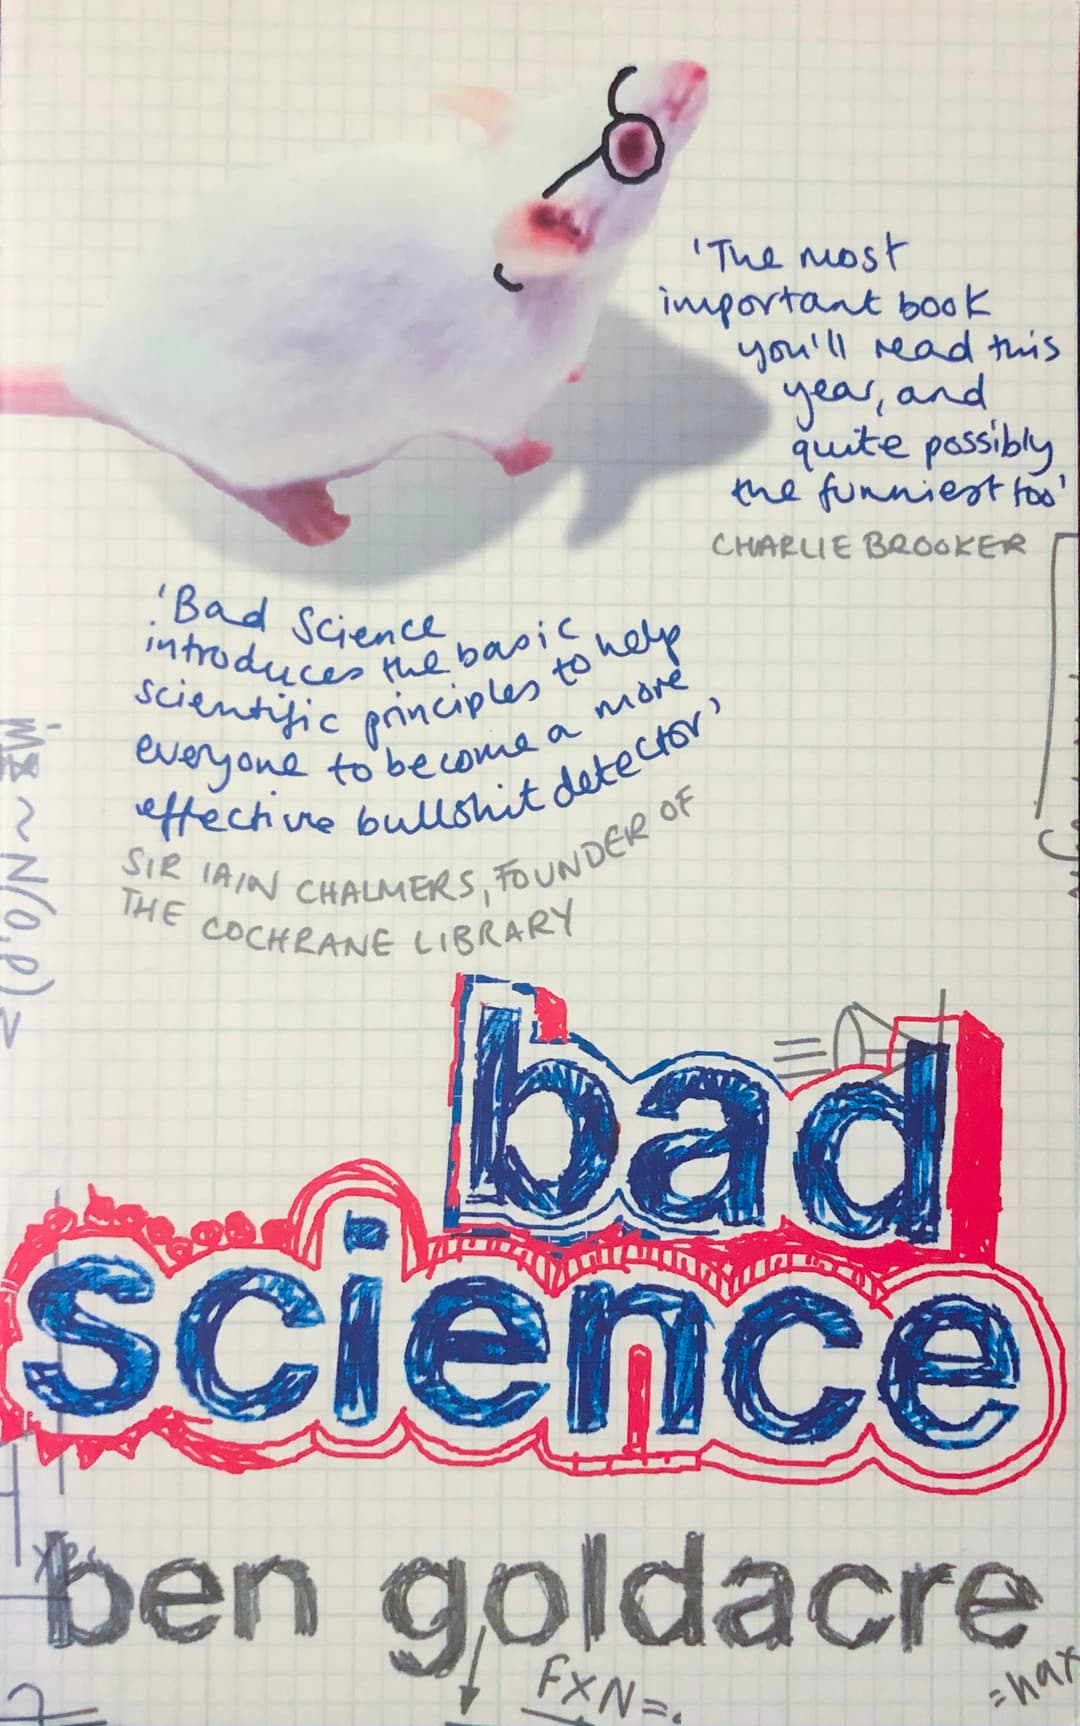 'The most
important book
you'll read this
year, and
quite possibly
the funniest too'
CHARLIE BROOKER
'Bad Science
introduces the basic
scientific principles to help
everyone to become a more
effective bullshit detector'
SIR IAIN CHALMERS, FOUNDER OF
THE COCHRANE LIBRARY
~N(0,σ)
bad
science
ben goldacre
FXN=